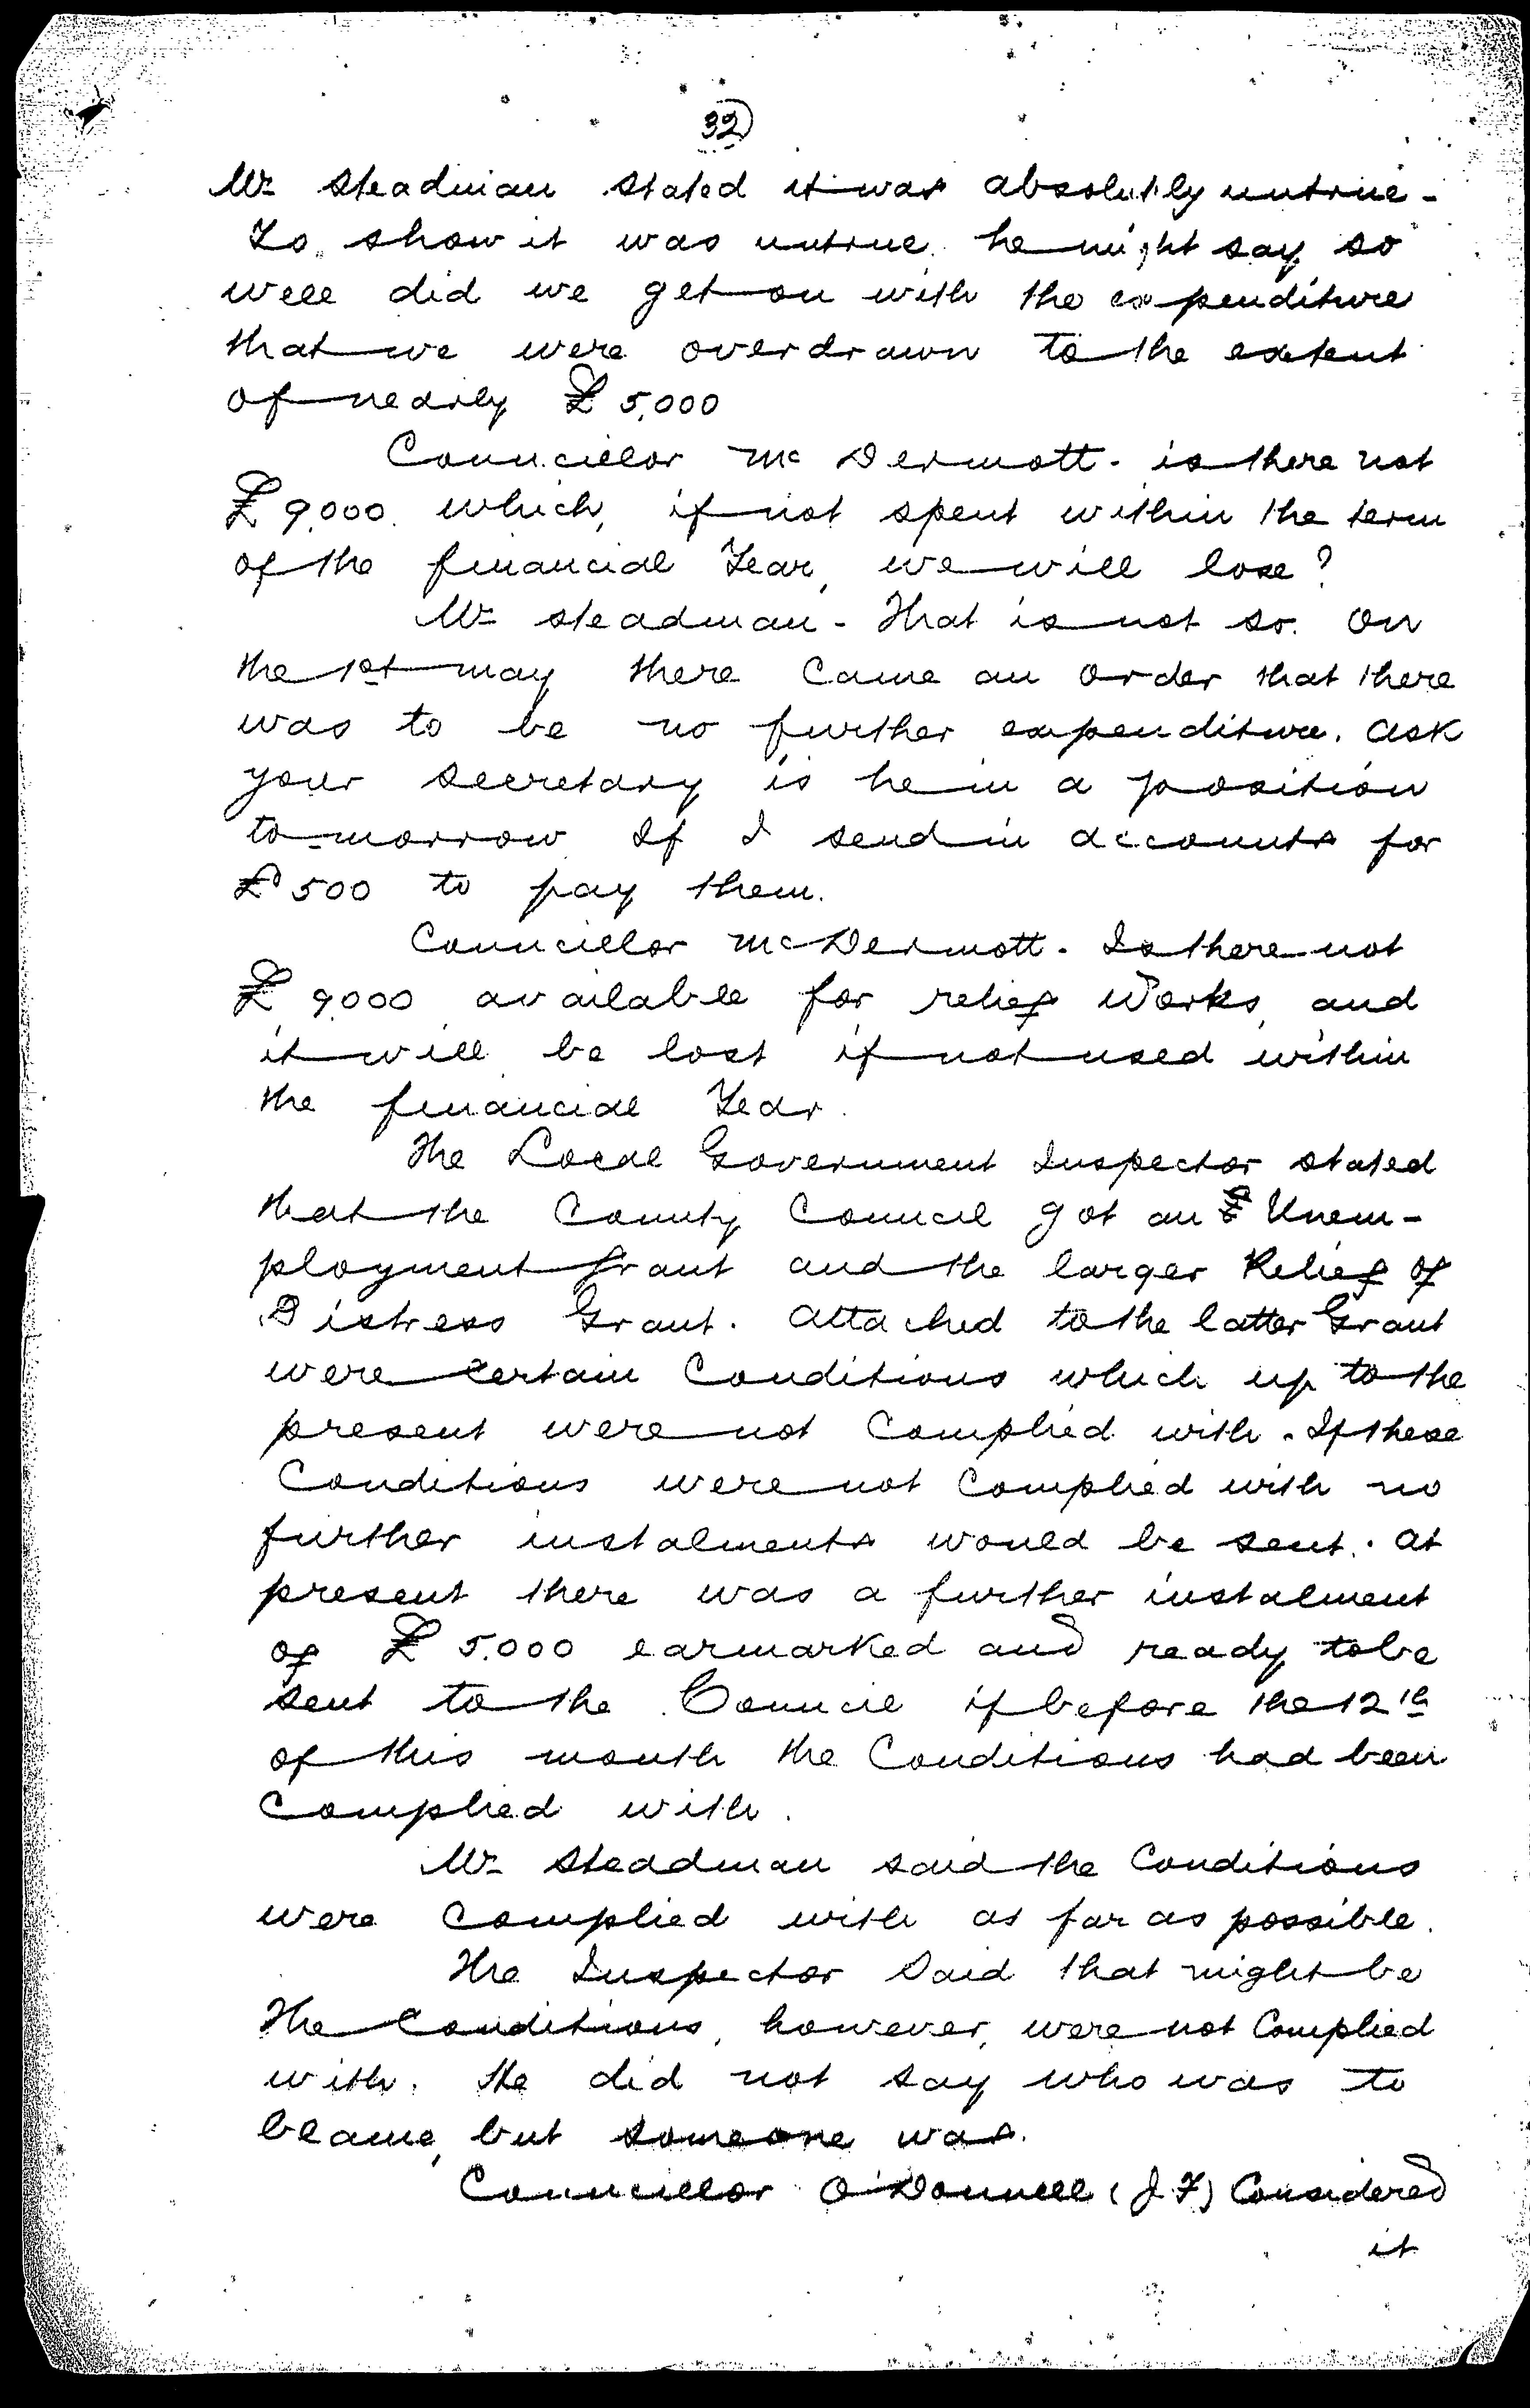 32
Mr Steadman stated it was absolutely untrue -
To show it was untrue he might say so
well did we get on with the expenditure
that we were overdrawn to the extent
of nearly £5,000
Councillor McDermott - is there not
£9,000 which, if not spent within the term
of the financial Year, we will lose?
Mr Steadman - That is not so. On
the 1st May there came an Order that there
was to be no further expenditure. Ask
your Secretary is he in a position
to-morrow If I send in accounts for
£500 to pay them.
Councillor McDermott - Is there not
£9,000 available for relief Works, and
it will be lost if not used within
the financial Year.
The Local Government Inspector stated
that the County Council got an Unem-
ployment Grant and the larger Relief of
Distress Grant. Attached to the latter Grant
were certain Conditions which up to the
present were not Complied with. If these
Conditions were not Complied with no
further instalments would be sent. At
present there was a further instalment
of £5,000 earmarked and ready to be
sent to the Council if before the 12th
of this month the Conditions had been
Complied with.
Mr Steadman said the Conditions
were Complied with as far as possible.
The Inspector said that might be
The Conditions, however, were not Complied
with. He did not say who was to
blame, but someone was.
Councillor O'Donnell (J F) Considered
it